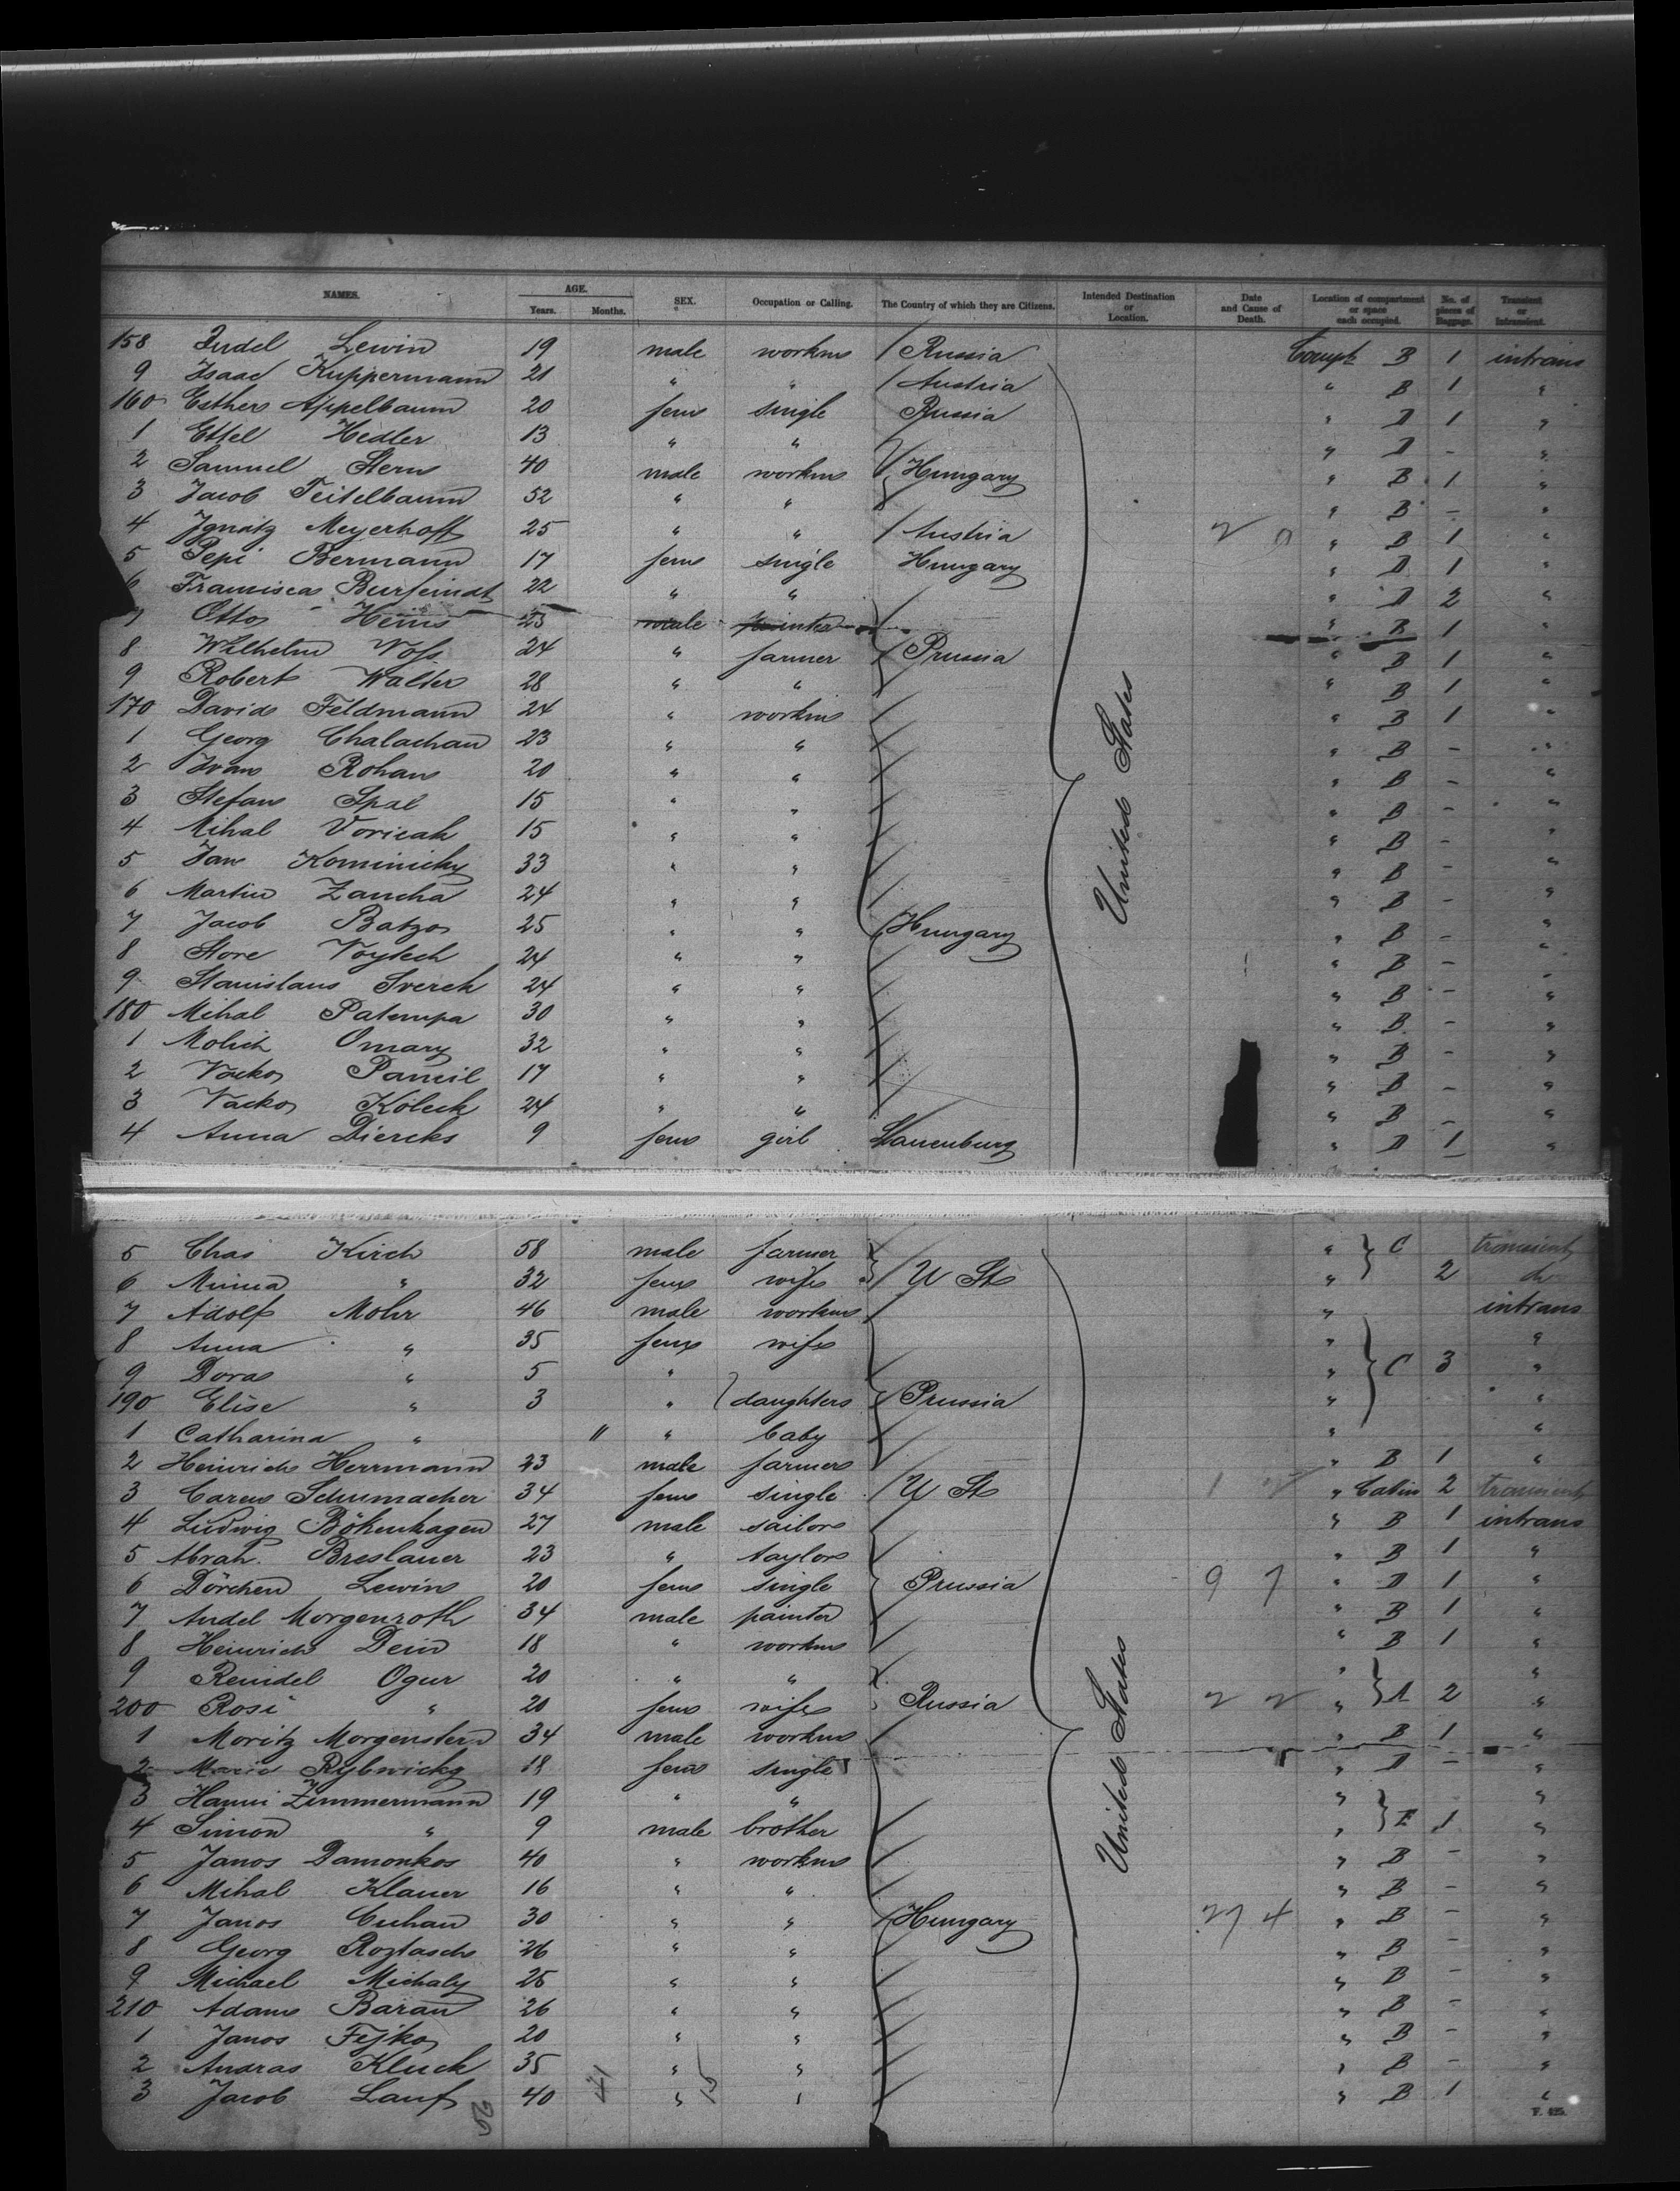 NAMES. AGE. Years. Months. SEX. Occupation or Calling. The Country of which they are Citizens. Intended Destination or Location. Date and Cause of Death. Location of compartment or space each occupied. No. of pieces of Baggage. Transient or Intransient.
158 Judel Lewin 19 male workm / Russia Compt B 1 intrans
9 Isaac Kuppermann 21 " " / Austria " B 1 "
160 Esther Appelbaum 20 fem single Russia " D 1 "
1 Ettel Hedler 13 " " " D - "
2 Samuel Stern 40 male workm / Hungary " B 1 "
3 Jacob Teitelbaum 52 " " " B - "
4 Ignatz Meyerhoff 25 " " / Austria " B 1 "
5 Pepi Bermann 17 fem single Hungary " D 1 "
6 Francisca Burfeindt 22 " " " D 2 "
7 Otto Heins 25 male painter / " B 1 "
8 Wilhelm Voss 24 " farmer / Prussia " B 1 "
9 Robert Walter 28 " " / " B 1 "
170 David Feldmann 24 " workm / " B 1 "
1 Georg Chalachan 23 " " / " B - "
2 Ivan Rohan 20 " " / " B - "
3 Stefan Spal 15 " " / " B - "
4 Mihal Voricah 15 " " / " B - "
5 Jan Kominicky 33 " " / " B - "
6 Martin Zancha 24 " " / " B - "
7 Jacob Batzo 25 " " / Hungary " B - "
8 Store Voytech 24 " " / " B - "
9 Stanislaus Sverch 24 " " / " B - "
180 Mihal Patempa 30 " " / " B - "
1 Molich Omary 32 " " / " B - "
2 Vacko Pameil 17 " " / " B - "
3 Vacko Koleck 24 " " / " B - "
4 Anna Diercks 9 fem girl Lauenburg " D 1 "
United States
5 Chas Kirch 58 male farmer " C transient
6 Minna " 32 fem wife / U St " 2 do
7 Adolf Mohr 46 male workm / " intrans
8 Anna " 35 fem wife " "
9 Dora " 5 " " C 3 "
190 Elise " 3 " daughters / Prussia " "
1 Catharina " 11 " baby / " "
2 Heinrich Herrmann 23 male farmer / " B 1 "
3 Caren Schumacher 34 fem single / U St " Cabin 2 transient
4 Ludwig Böhenhagen 27 male sailor / " B 1 intrans
5 Abrah. Breslauer 23 " taylor / " B 1 "
6 Dörchen Lewin 20 fem single Prussia " D 1 "
7 Audel Morgenroth 34 male painter / " B 1 "
8 Heinrich Dein 18 " workm / " B 1 "
9 Reindel Ogur 20 " " / " "
200 Rosi " 20 fem wife Russia " A 2 "
1 Moritz Morgenstern 34 male workm / " B 1 "
2 Marie Rybnicky 18 fem single " D - "
3 Hanni Zimmermann 19 " " " "
4 Simon " 9 male brother / " E 1 "
5 Janos Damonkos 40 " workm / " B - "
6 Mihal Klauer 16 " " / " B - "
7 Janos Cuhan 30 " " / Hungary 27 4 " B - "
8 Georg Roztasch 26 " " / " B - "
9 Michael Michaly 25 " " / " B - "
210 Adam Baran 26 " " / " B - "
1 Janos Fejko 20 " " / " B - "
2 Andras Kluck 35 " " / " B - "
3 Jacob Lauf 40 " " / " B 1 "
United States